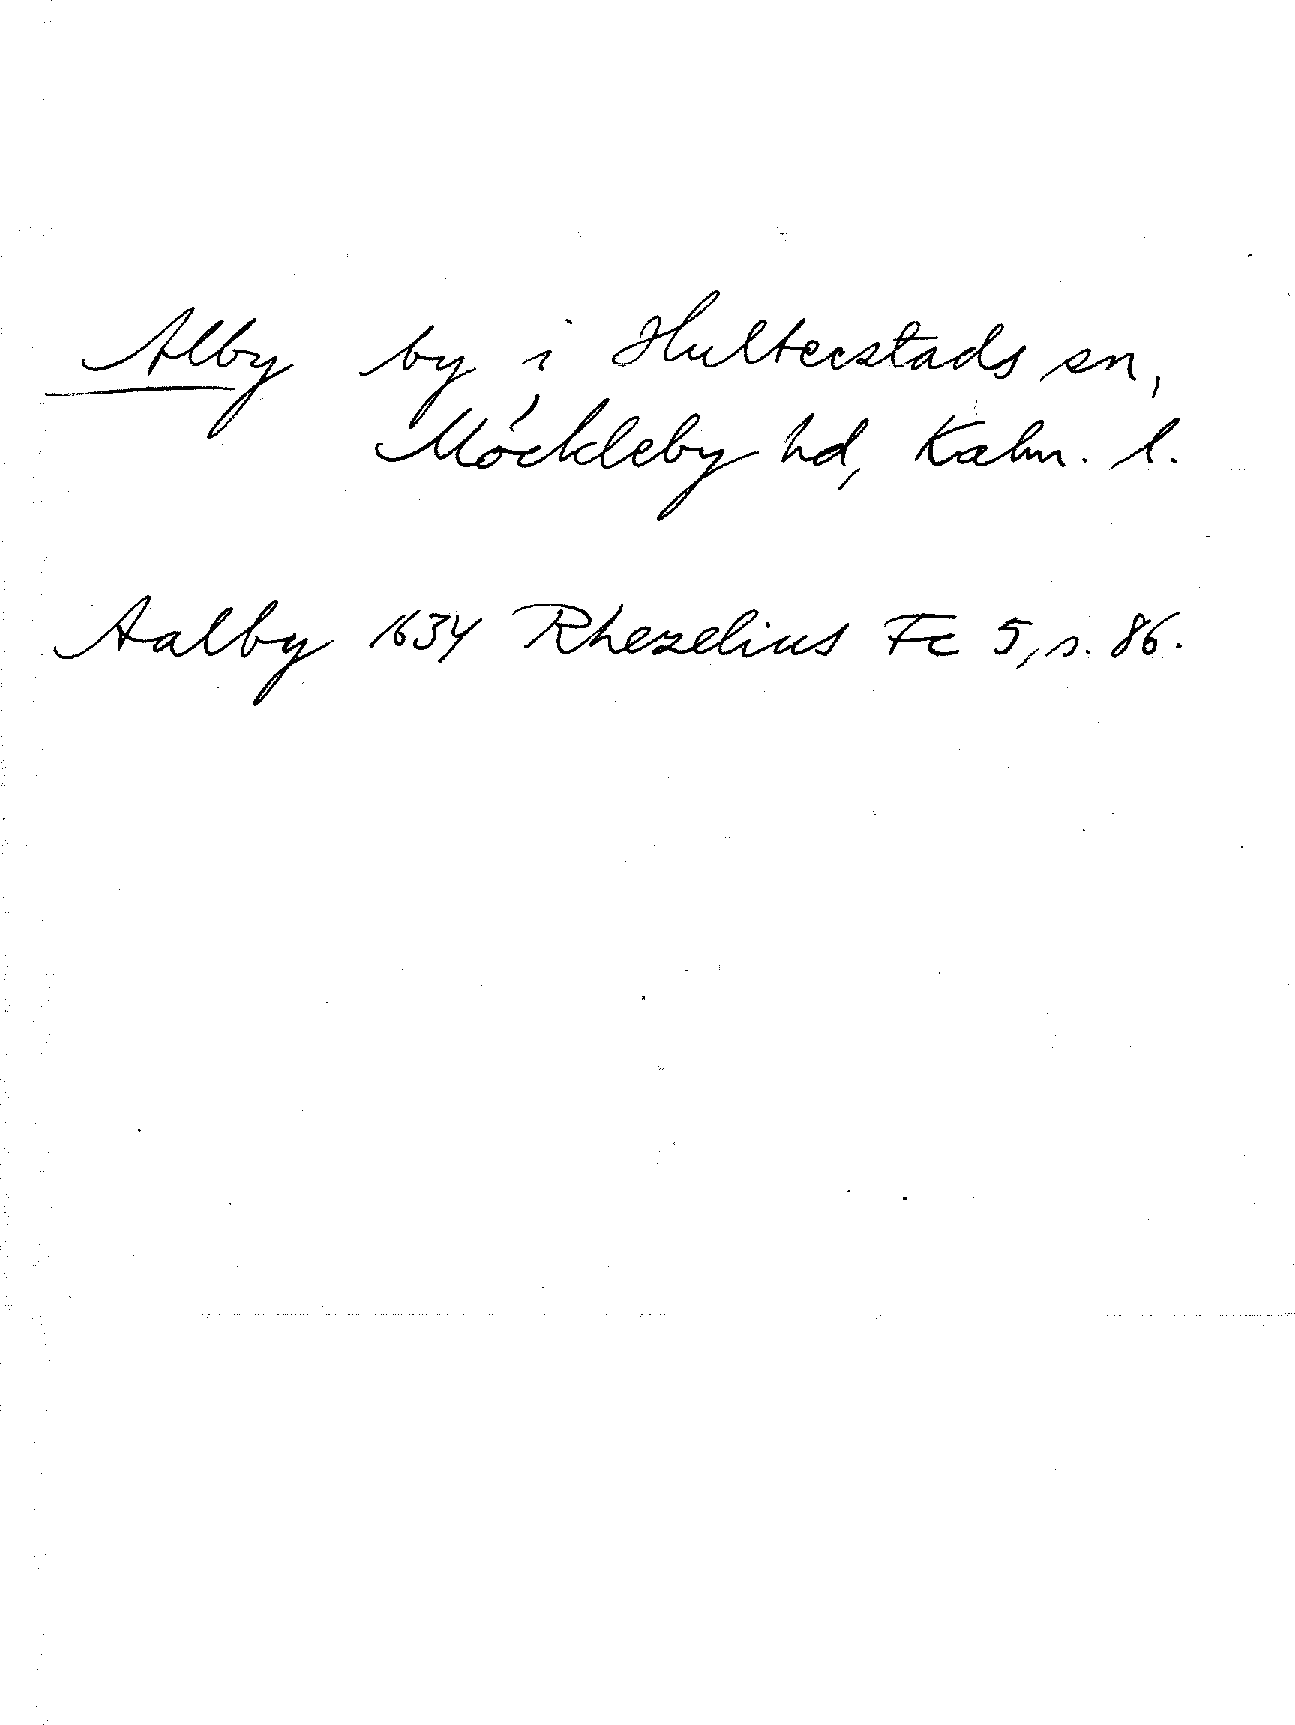 Alby by i Hulterstads sn,
Möckleby hd, Kalm. l.
Aalby 1634 Rhezelius Fc 5, s. 86.